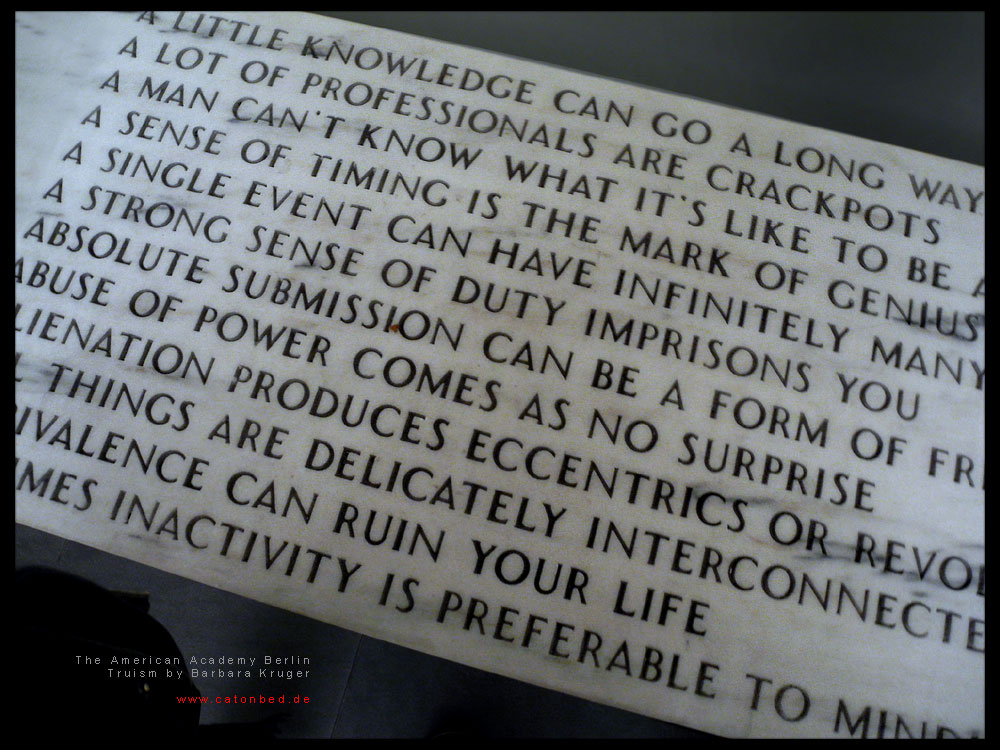 A LITTLE KNOWLEDGE CAN GO A LONG WAY
A LOT OF PROFESSIONALS ARE CRACKPOTS
A MAN CAN'T KNOW WHAT IT'S LIKE TO BE A
A SENSE OF TIMING IS THE MARK OF GENIUS
A SINGLE EVENT CAN HAVE INFINITELY MANY
A STRONG SENSE OF DUTY IMPRISONS YOU
ABSOLUTE SUBMISSION CAN BE A FORM OF FR
ABUSE OF POWER COMES AS NO SURPRISE
LIENATION PRODUCES ECCENTRICS OR REVOL
L THINGS ARE DELICATELY INTERCONNECTE
IVALENCE CAN RUIN YOUR LIFE
IMES INACTIVITY IS PREFERABLE TO MIND
The American Academy Berlin
Truism by Barbara Kruger
www.catonbed.de